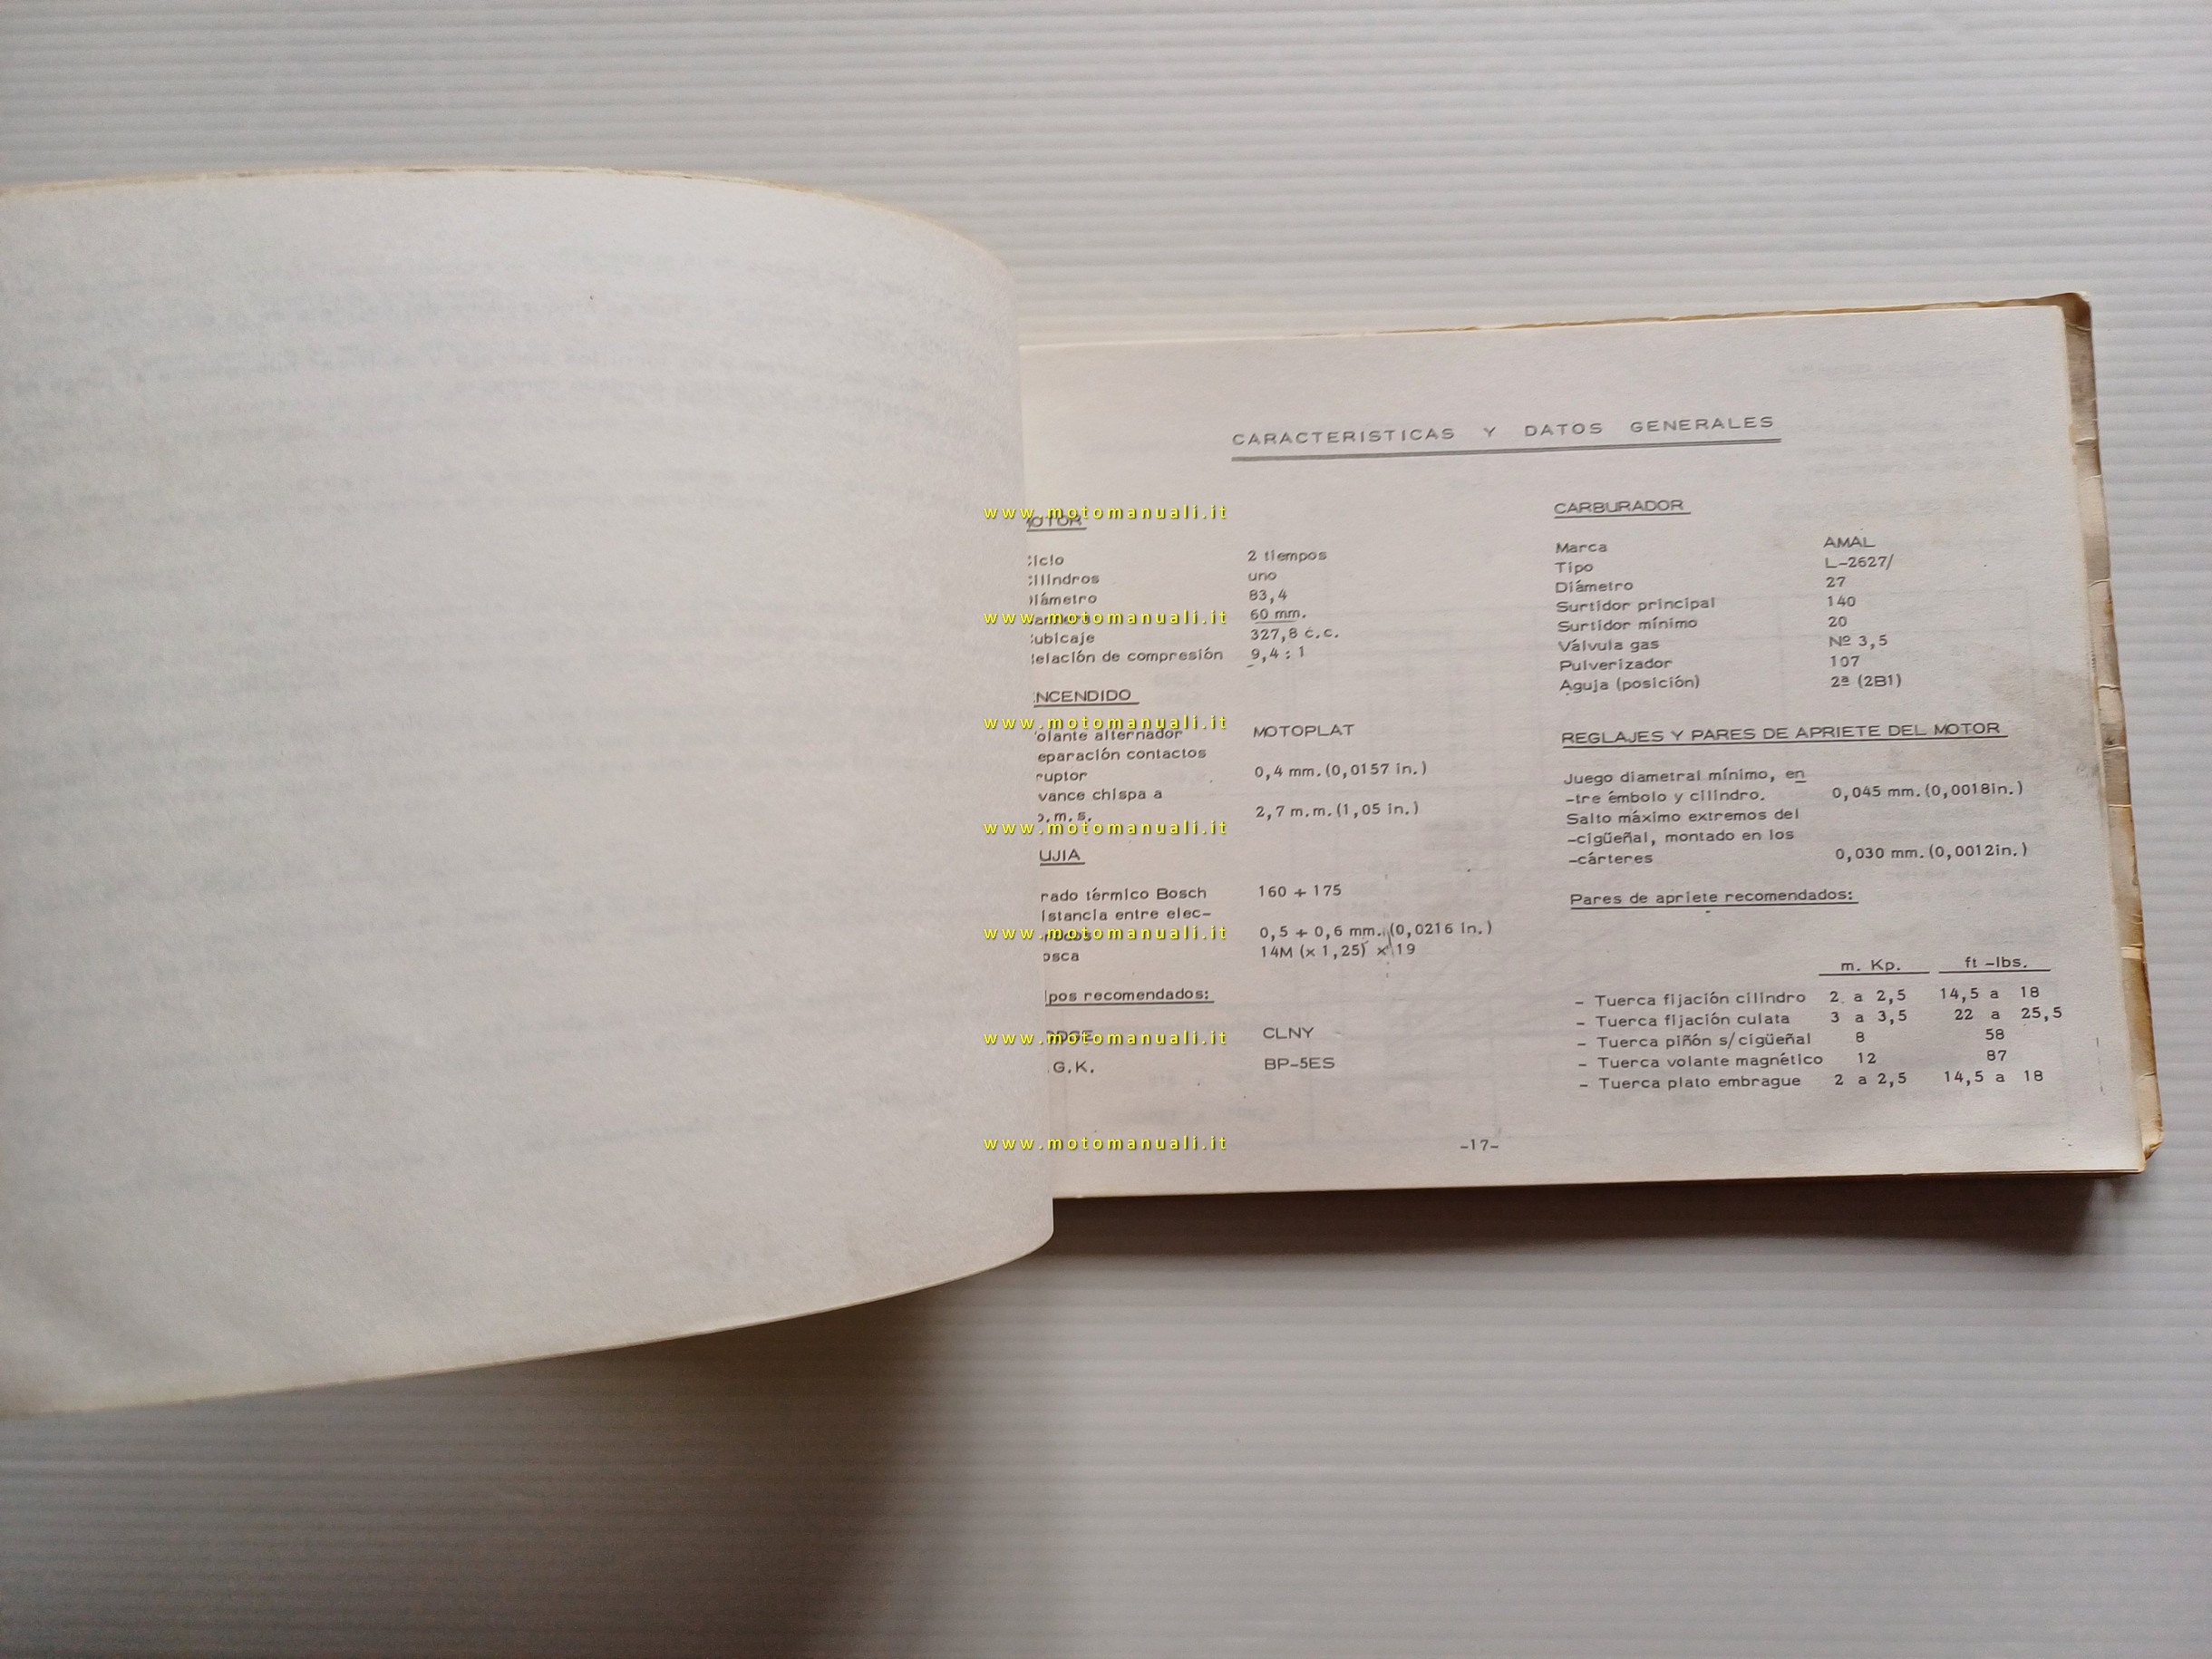 CARACTERISTICAS Y DATOS GENERALES
www.motomanuali.it
MOTOR
:iclo 2 tiempos
:ilindros uno
iámetro 83,4
www.motomanuali.it
60 mm.
ubicaje 327,8 c.c.
elación de compresión 9,4 : 1
NCENDIDO
www.motomanuali.it
olante alternador MOTOPLAT
eparación contactos
ruptor 0,4 mm.(0,0157 in.)
vance chispa a
.m.s. 2,7 m.m.(1,05 in.)
www.motomanuali.it
UJIA
rado térmico Bosch 160 + 175
istancia entre elec-
www.motomanuali.it
0,5 + 0,6 mm. (0,0216 in.)
osca 14M (x 1,25) x 19
ipos recomendados:
www.motomanuali.it
CLNY
.G.K. BP-5ES
www.motomanuali.it
CARBURADOR
Marca AMAL
Tipo L-2627/
Diámetro 27
Surtidor principal 140
Surtidor mínimo 20
Válvula gas Nº 3,5
Pulverizador 107
Aguja (posición) 2ª (2B1)
REGLAJES Y PARES DE APRIETE DEL MOTOR
Juego diametral mínimo, en
-tre émbolo y cilindro. 0,045 mm.(0,0018in.)
Salto máximo extremos del
-cigüeñal, montado en los
-cárteres 0,030 mm.(0,0012in.)
Pares de apriete recomendados:
m. Kp. ft -lbs.
- Tuerca fijación cilindro 2 a 2,5 14,5 a 18
- Tuerca fijación culata 3 a 3,5 22 a 25,5
- Tuerca piñón s/cigüeñal 8 58
- Tuerca volante magnético 12 87
- Tuerca plato embrague 2 a 2,5 14,5 a 18
-17-